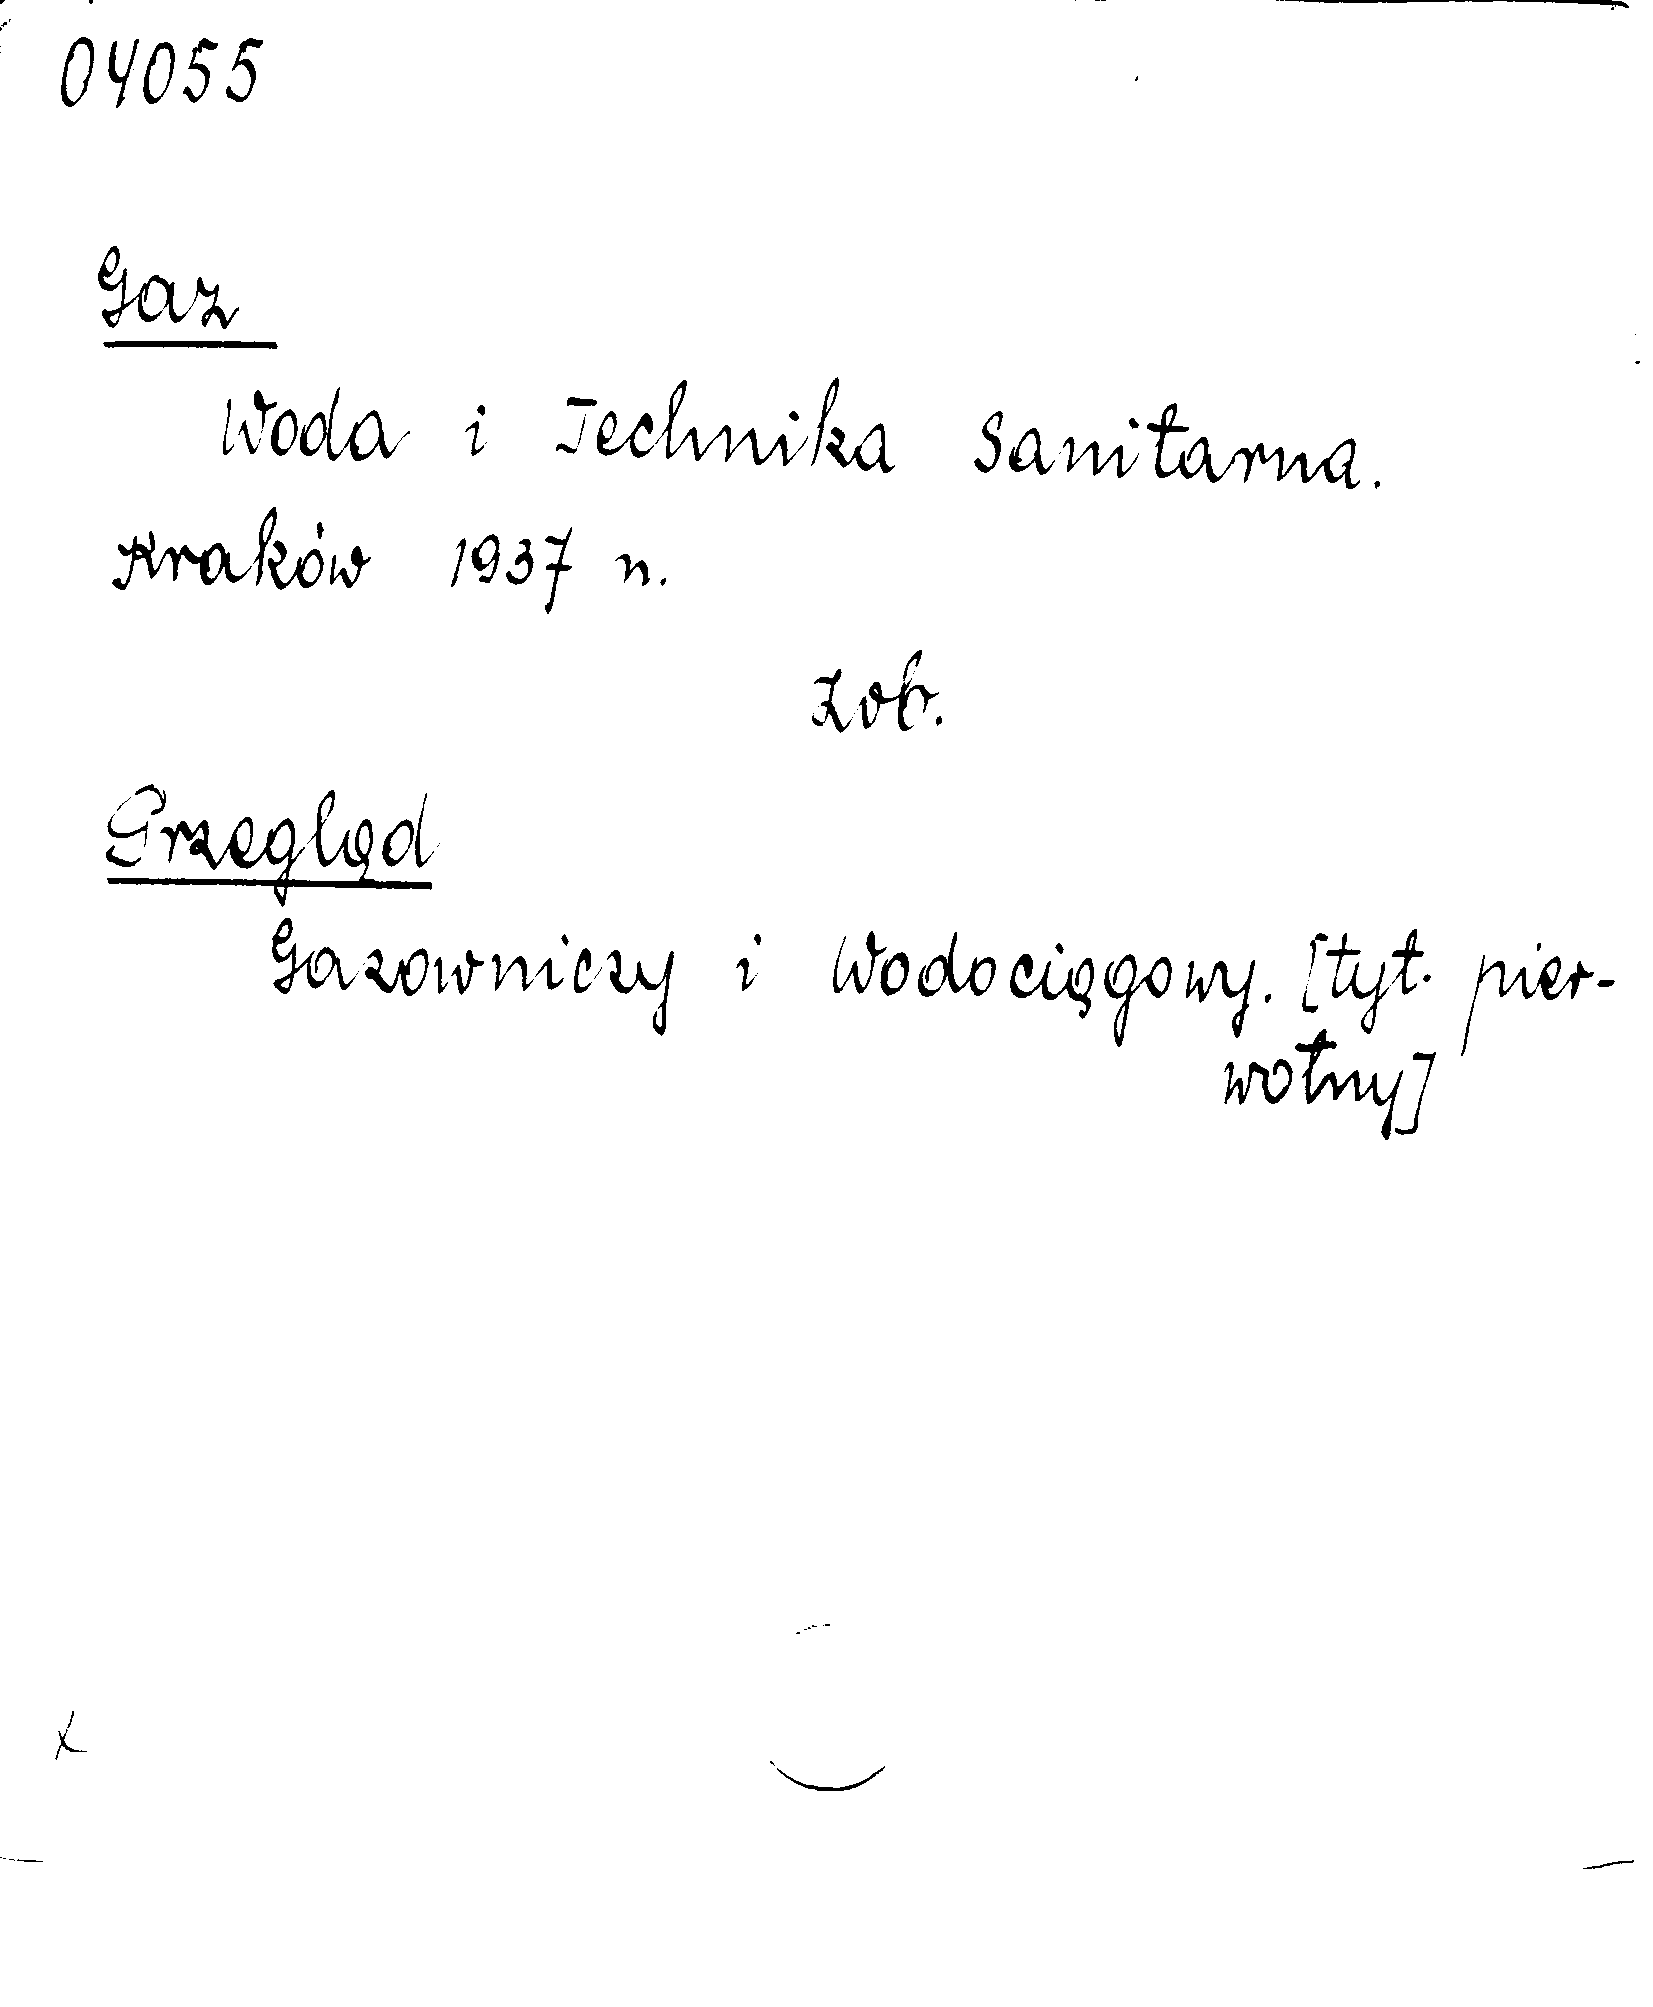 04055
Gaz
Woda i Technika Sanitarna.
Kraków 1937 n.
Zob.
Przegląd
Gazowniczy i Wodociągowy. [tyt. pier-
wotny]
x